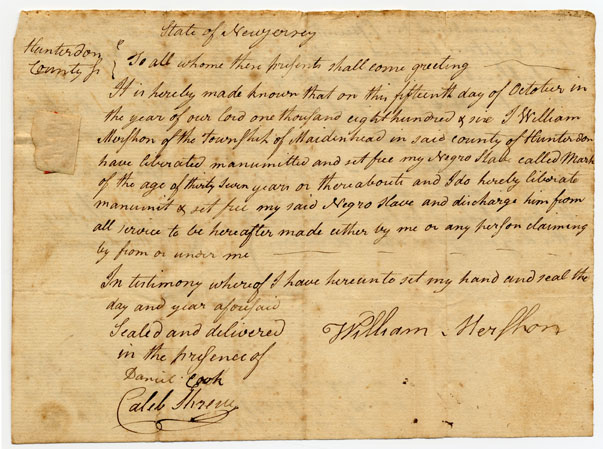 State of Newjersey
Hunterdon
County ss
To all whome these presents shall come greeting
It is hereby made known that on this fifteenth day of October in
the year of our Lord one thousand eight hundred & six I William
Mershon of the Township of Maidenhead in said county of Hunterdon
have liberated manumitted and set free my Negro Slave called Mark
of the age of thirty seven years or thereabouts and I do hereby liberate
manumit & set free my said Negro slave and discharge him from
all service to be hereafter made either by me or any person claiming
by from or under me
In testimony whereof I have hereunto set my hand and seal the
day and year aforesaid
Sealed and delivered
in the presence of
William Mershon
Daniel Cook
Caleb Shreve